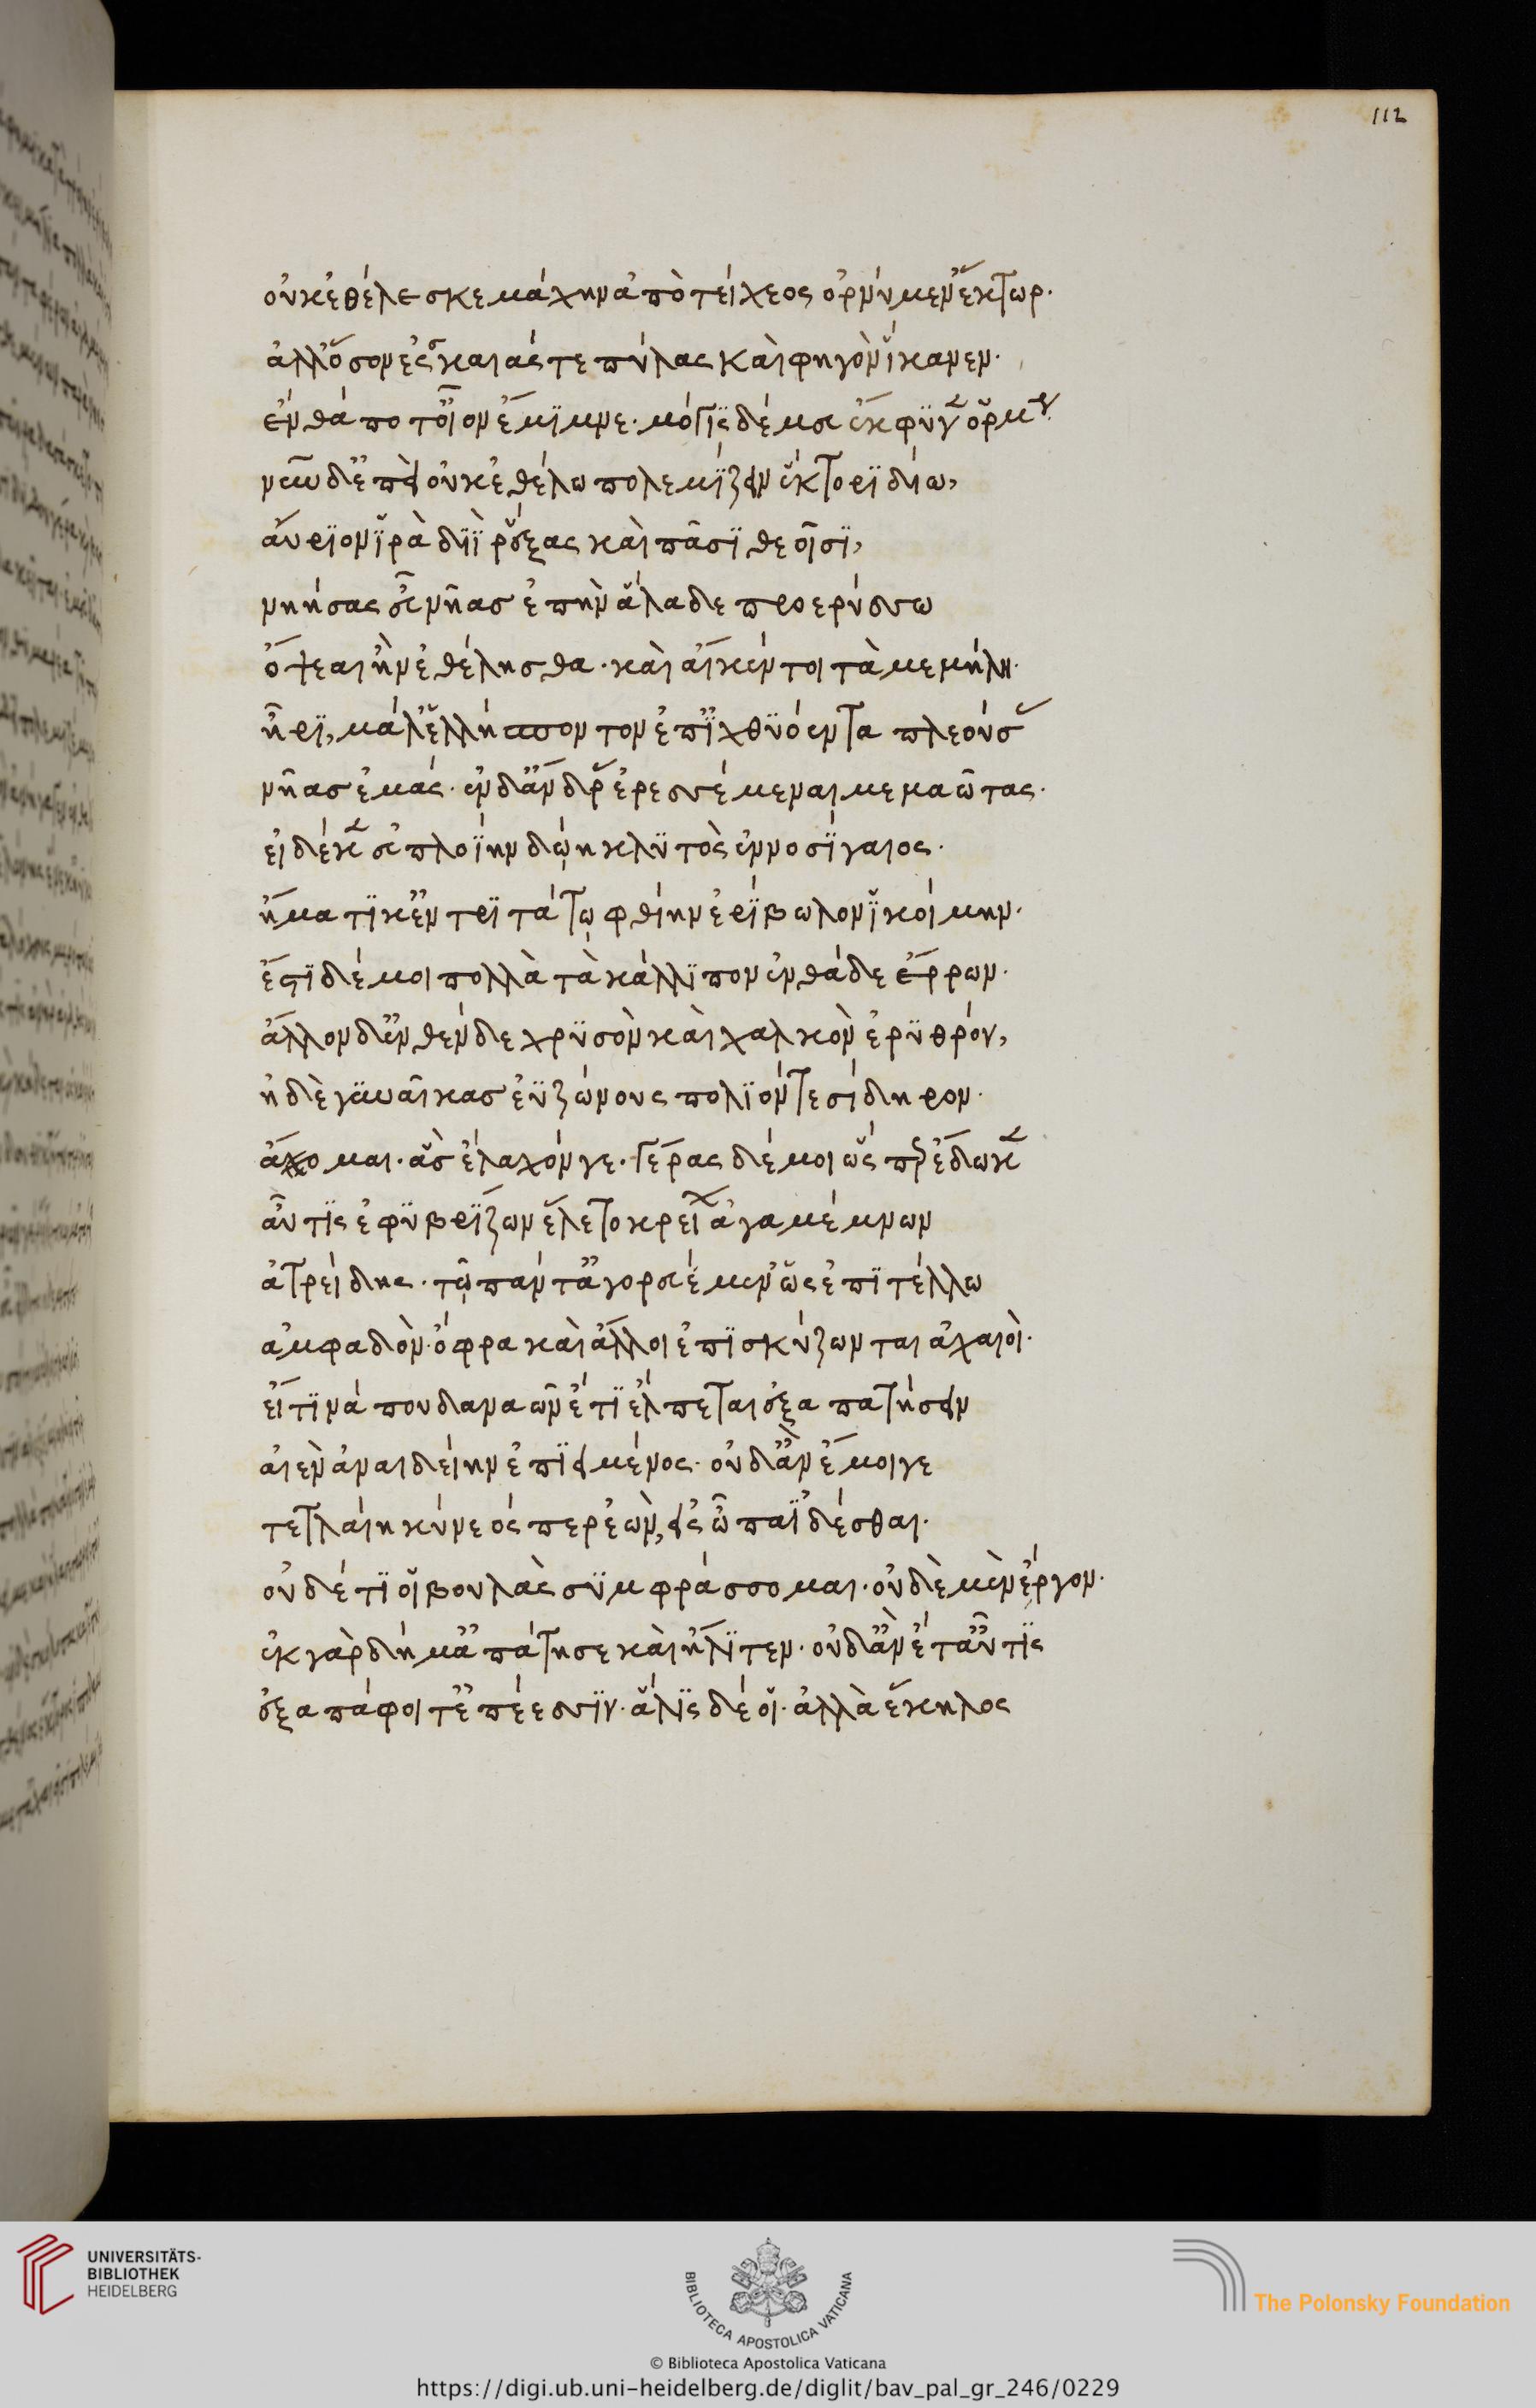 112
οὐκ ἐθέλεσκε μάχην ἀπὸ τείχεος ὀρνύμεν ἕκτωρ·
ἀλλ' ὅσον ἐς σκαιάς τε πύλας καὶ φηγὸν ἵκανεν·
ἔνθά ποτ' οἶον ἔμιμνε· μόγις δέ μευ ἔκφυγεν ὁρμήν·
νῦν δ' ἐπεὶ οὐκ ἐθέλω πολεμίζειν ἕκτορι δίω,
αὔριον ἱρὰ διὶ ῥέξας καὶ πᾶσι θεοῖσι,
νηήσας εὖ νῆας ἐπὴν ἅλα δε προερύσσω
ὄψεαι ἢν ἐθέλησθα· καὶ αἴ κέν τοι τὰ μεμήλη·
ἦρι, μάλ' ἑλλήσποντον ἐπ' ἰχθυόεντα πλεούσας
νῆας ἐμάς· ἐν δ' ἄνδρας ἐρεσσέμεναι μεμαῶτας·
εἰ δέ κεν εὐπλοΐην δώη κλυτὸς ἐννοσίγαιος·
ἤματί κεν τριτάτω φθίην ἐρίβωλον ἱκοίμην·
ἔστι δέ μοι πολλὰ τὰ κάλλιπον ἐνθάδε ἔρρων·
ἄλλον δ' ἐνθένδε χρυσὸν καὶ χαλκὸν ἐρυθρόν,
ἠδὲ γυναῖκας ἐϋζώνους πολιόν τε σίδηρον·
ἄξομαι· ἅσσ' ἔλαχόν γε· γέρας δέ μοι ὥς περ ἔδωκεν
αὖτις ἐφυβρίζων ἕλετο κρείων ἀγαμέμνων
ἀτρείδης· τῷ πάντ' ἀγορευέμεν ὡς ἐπιτέλλω
ἀμφαδὸν· ὄφρα καὶ ἄλλοι ἐπισκύζωνται ἀχαιοὶ·
εἴ τινά που δαναῶν ἔτι ἔλπεται ἐξαπατήσειν
αἰὲν ἀναιδείην ἐπιειμένος· οὐδ' ἂν ἔμοιγε
τετλαίη κύνεός περ ἐὼν, εἰς ὦπα ἰδέσθαι·
οὐδέ τί οἱ βουλὰς συμφράσσομαι· οὐδὲ μὲν ἔργον·
ἐκ γὰρ δή μ' ἀπάτησε καὶ ἤλιτεν· οὐδ' ἂν ἔτ' αὖτις
ἐξαπάφοιτ' ἐπέεσσιν· ἅλις δέ οἱ· ἀλλὰ ἕκηλος
UNIVERSITÄTS-
BIBLIOTHEK
HEIDELBERG
BIBLIOTECA APOSTOLICA VATICANA
The Polonsky Foundation
© Biblioteca Apostolica Vaticana
https://digi.ub.uni-heidelberg.de/diglit/bav_pal_gr_246/0229